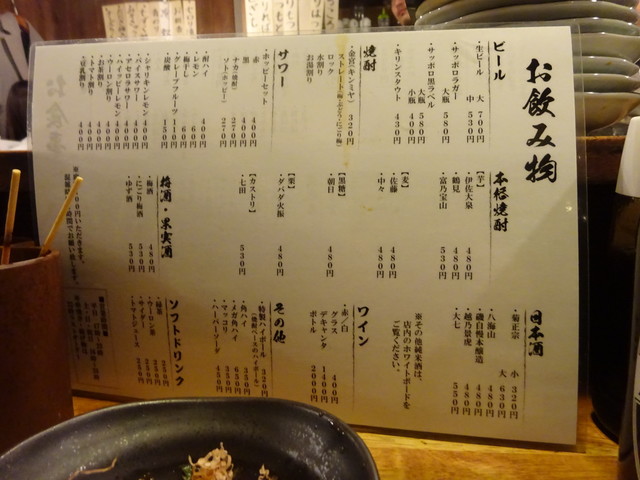 お飲み物
ビール
・生ビール 大 700円
中 530円
・サッポロラガー
大瓶 580円
・サッポロ黒ラベル
大瓶 580円
小瓶 400円
・キリンスタウト 430円
焼酎
・金宮(キンミヤ) 320円
ロック
水割り
お湯割り
サワー
・ホッピーセット
赤 400円
黒 400円
ナカ(焼酎) 270円
ソト(ホッピー) 270円
・酎ハイ 400円
・レモン
・梅干し
・グレープフルーツ 110円
・炭酸 150円
・シャリキンレモン 400円
・バイスサワー 400円
・アセロラサワー 400円
・ハイッピーレモン 400円
・ウーロン割り 400円
・お茶割り 400円
・トマト割り 400円
・豆乳割り 400円
本格焼酎
【芋】
・伊佐大泉 480円
・鶴見 480円
・富乃宝山 530円
【麦】
・佐藤 480円
・中々 480円
【黒糖】
・朝日 480円
【栗】
・ダバダ火振 480円
【カストリ】
・七田 530円
梅酒・果実酒
・梅酒 480円
・にごり梅酒 530円
・ゆず酒 530円
日本酒
・菊正宗 小 320円
大 630円
・八海山 480円
・磯自慢本醸造 480円
・越乃景虎 480円
・大七 550円
※その他純米酒は、
店内のホワイトボードを
ご覧ください。
ワイン
・赤/白
グラス 400円
デキャンタ 1400円
ボトル 2000円
その他
・特製ハイボール 320円
(焼酎ベースのハイボール)
・角ハイ 350円
・メガ角ハイ 650円
・マッコリ 550円
・ハーパーソーダ 450円
ソフトドリンク
・緑茶 250円
・ウーロン茶 250円
・サイダー 250円
・トマトジュース 250円